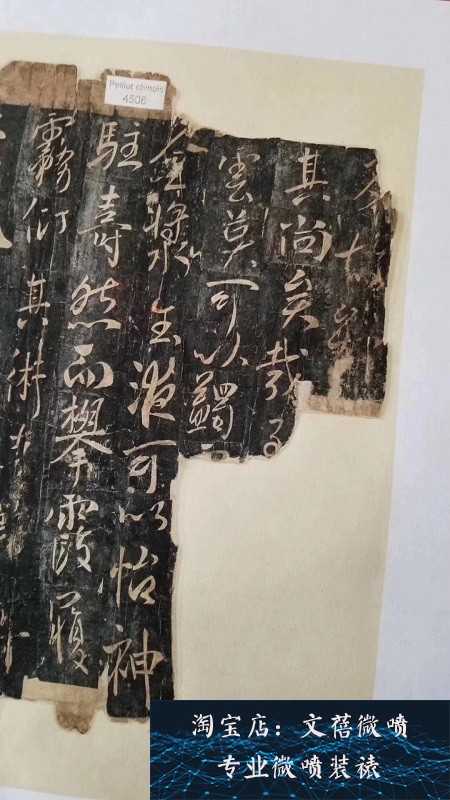 其尚矣哉
雲莫可以蠲
金漿玉液可以怡神
駐壽然而攀霞履
霧衍其術
Pelliot chinois
4508
淘宝店：文蓓微喷
专业微喷装裱